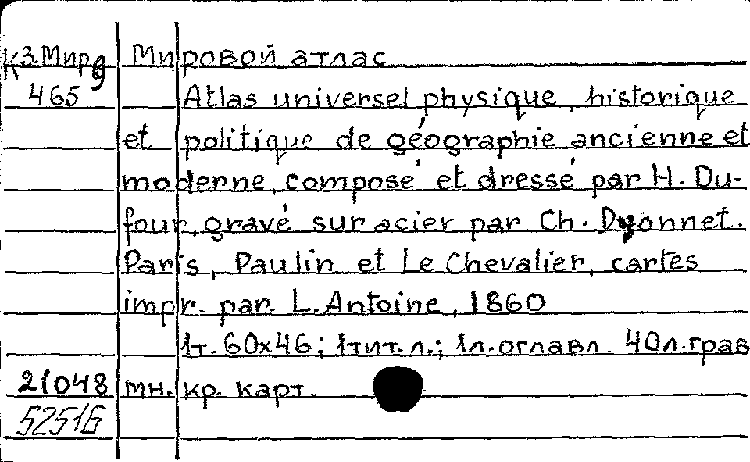 К3.Мир 9 Мировой атлас
465 Atlas universel physique, historique
et politique de géographie ancienne et
moderne, composé et dressé par H. Du-
four, gravé sur acier par Ch. Dyonnet.
Paris, Paulin et Le Chevalier, cartes
impr. par. L. Antoine, 1860
1т. 60x46; 1тит.л.; 1л.оглавл. 40л.грав
21048 мн. кр. карт.
52516